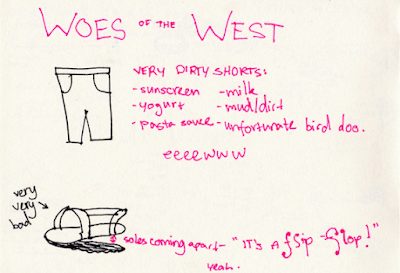 WOES OF THE WEST
VERY DIRTY SHORTS:
- sunscreen - milk
- yogurt - mud/dirt
- pasta sauce - unfortunate bird doo.
eeeewww
very
very
bad
soles coming apart - "IT'S A flip - flop!"
yeah.